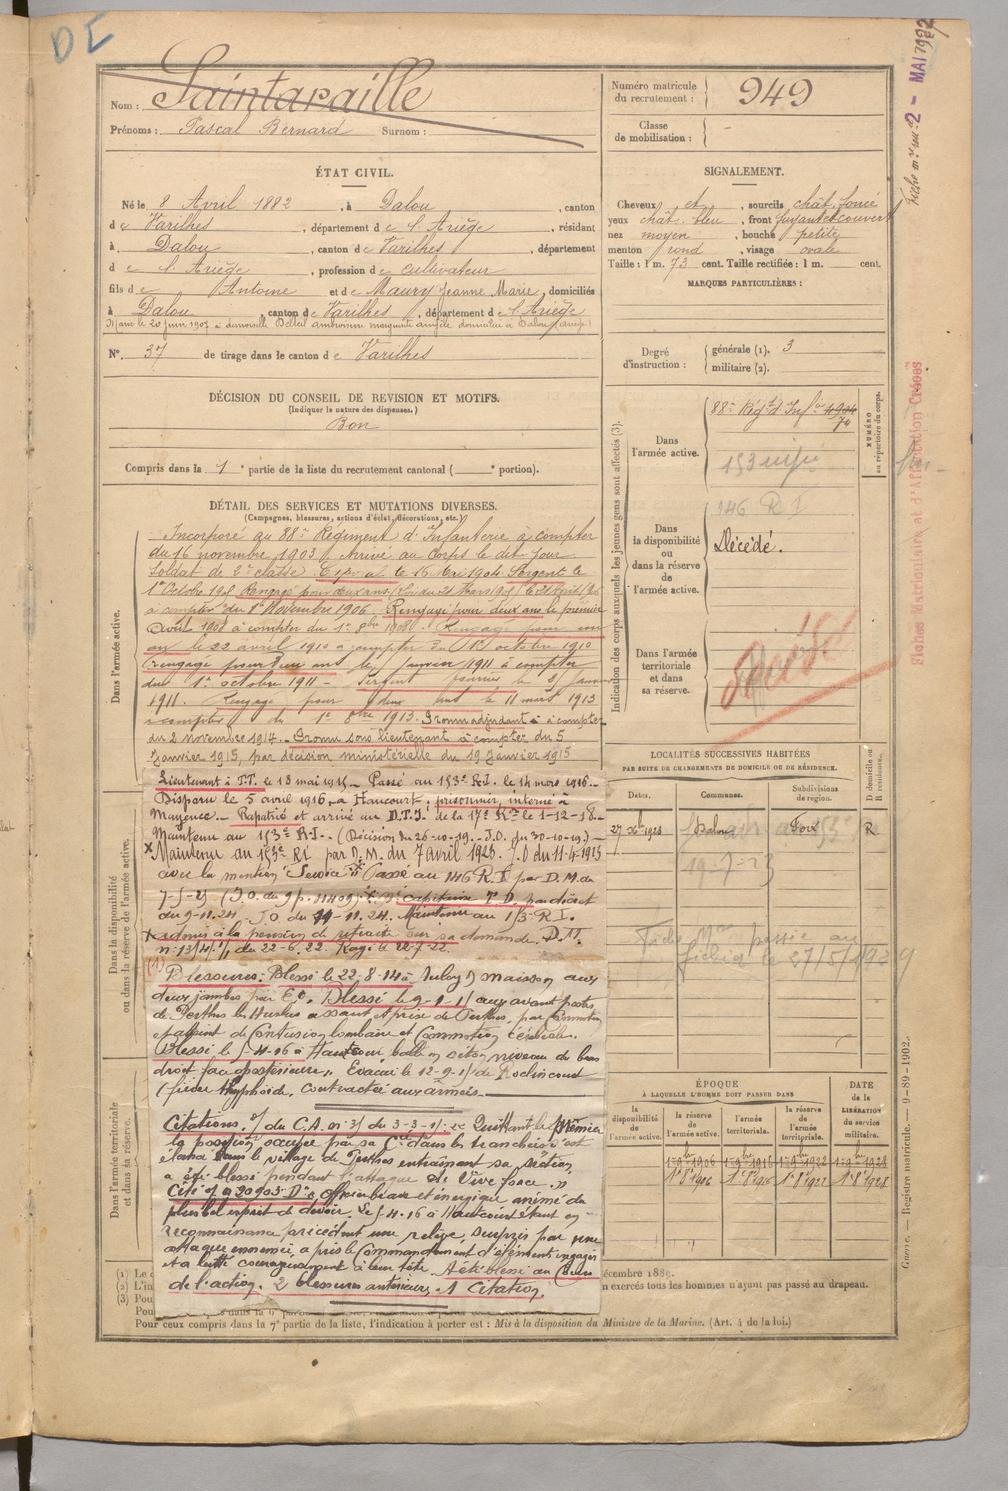 DE
Fiche mle mle 2 - MAI 1922
Nom : Saintaraille
Prénoms : Pascal Bernard Surnom :
Numéro matricule
du recrutement : 949
Classe
de mobilisation :
ÉTAT CIVIL.
Né le 8 Avril 1882, à Dalou, canton
de Varilhes, département de l'Ariège, résidant
à Dalou, canton de Varilhes, département
de l'Ariège, profession de cultivateur
fils de Antoine et de Maury Jeanne Marie, domiciliés
à Dalou, canton de Varilhes, département de l'Ariège
Marié le 20 juin 1907 à demoiselle domiciliée à Dalou (Ariège)
N° 37 de tirage dans le canton de Varilhes
SIGNALEMENT.
Cheveux et, sourcils chât. foncé
yeux chât. bleu, front fuyant et couvert
nez moyen, bouche petite
menton rond, visage ovale
Taille : 1 m. 73 cent. Taille rectifiée : 1 m. cent.
MARQUES PARTICULIÈRES :
Degré
d'instruction :
générale (1). 3
militaire (2).
DÉCISION DU CONSEIL DE REVISION ET MOTIFS.
(Indiquer la nature des dispenses.)
Bon
Compris dans la 1e partie de la liste du recrutement cantonal ( e portion).
Indication des corps auxquels les jeunes gens sont affectés (3).
NUMÉRO
au répertoire du corps.
Dans
l'armée active.
88e Régt d'Infie
153 infie
Dans
la disponibilité
ou
dans la réserve
de l'armée active.
146 R I
Décédé.
Dans l'armée
territoriale
et dans
sa réserve.
Fiches Matriculaire et d'Affectation Créées
DÉTAIL DES SERVICES ET MUTATIONS DIVERSES.
(Campagnes, blessures, actions d'éclat, décorations, etc.)
Dans l'armée active.
Incorporé au 88e Régiment d'Infanterie à compter
du 16 novembre 1903. Arrivé au Corps le dit jour
Soldat de 2e classe. Caporal le 16 Mai 1904. Sergent le
1er Octobre 1905 Rengagé pour deux ans
à compter du 1er Novembre 1906. Rengagé pour deux ans le premier
Août 1908 à compter du 1er 8bre 1908. Rengagé pour un
an le 22 avril 1910 à compter du 1er octobre 1910
Rengagé pour deux ans le janvier 1911 à compter
du 1er octobre 1911 - Sergent fourrier le 8 janvier
1911. Rengagé pour deux ans le 11 mars 1913
à compter du 1er 8bre 1913. Promu adjudant à compter
du 2 novembre 1914. Promu sous lieutenant à compter du 5
Janvier 1915, par décision ministérielle du 19 Janvier 1915
Lieutenant à T.T. le 18 mai 1915. Passé au 153e R.I. le 14 mars 1916.
Disparu le 5 avril 1916, à Haucourt, prisonnier, interné à
Mayence. Rapatrié et arrivé au D.T.I. de la 17e Rn le 1-12-18.
Maintenu au 153e R.I. (Décision du 26-10-19. J.O. du 30-10-19.)
Maintenu au 153e RI par D.M. du 7 avril 1923. J.O du 11-4-1923
avec la mention "Service". Passé au 146 R.I par D.M. du
capitaine T.D. par décret
du 9-11.24. JO du 11-11.24. Maintenu au 153 R.I.
admis à la pension de retraite sur sa demande. D.M.
Dans la disponibilité
ou dans la réserve de l'armée active.
(1)
Blessures : Blessé le 22-8-14 à maison aux
deux jambes par E.O. Blessé le 9-1-15 aux avant postes
de Perthes les Hurlus assaut et prise de Perthes, par Commotion
et atteint de Contusion lombaire et Commotion Cérébrale.
Blessé le 5-4-16 à Haucourt balle en séton niveau du bras
droit face postérieure. Évacué le 12-9-15 de Roclincourt
(fièvre typhoïde, contractée aux armées.
Citations. du C.A. Quittant le Premier
la position occupée par sa Cie dans les tranchées s'est
élancé dans le village de Perthes entraînant sa section
a été blessé pendant l'attaque de vive force. »
Cité Officier brave et énergique animé du
plus bel esprit de devoir. Le 5-4-16 à Haucourt étant en
reconnaissance précédant une relève, surpris par une
attaque ennemie, a pris le Commandement d'éléments engagés
et a lutté courageusement à leur tête. A été blessé au Cours
de l'action. 2 blessures antérieures, 1 Citation.
Dans l'armée territoriale
et dans sa réserve.
LOCALITÉS SUCCESSIVES HABITÉES
PAR SUITE DE CHANGEMENTS DE DOMICILE OU DE RÉSIDENCE.
Dates. Communes. Subdivisions
de region. D domicile ou
R résidence.
Dalou Foix R
19-7-23
Fiche Mle passée au
fichier le 27/5/1929
ÉPOQUE
À LAQUELLE L'HOMME DOIT PASSER DANS
DATE
de la
LIBÉRATION
du service
militaire.
la
disponibilité
de
l'armée active.
la réserve
de
l'armée active.
l'armée
territoriale.
la réserve
de
l'armée
territoriale.
1er 8bre 1906 1er 8bre 1916
(1) Le d écembre 1889.
(2) L'in n exercés tous les hommes n'ayant pas passé au drapeau.
(3) Pou
Pou
Pour ceux compris dans la 7e partie de la liste, l'indication à porter est : Mis à la disposition du Ministre de la Marine. (Art. 4 de la loi.)
Guerre. — Registre matricule. — 9-89-1902.